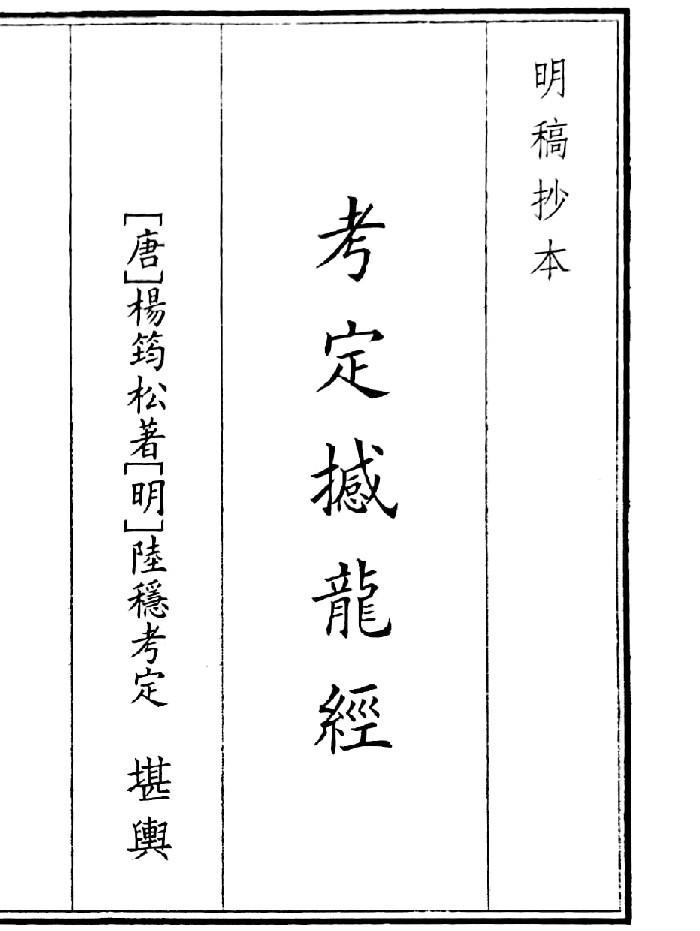 明稿抄本
考定撼龍經
[唐]楊筠松著[明]陸穩考定　堪輿